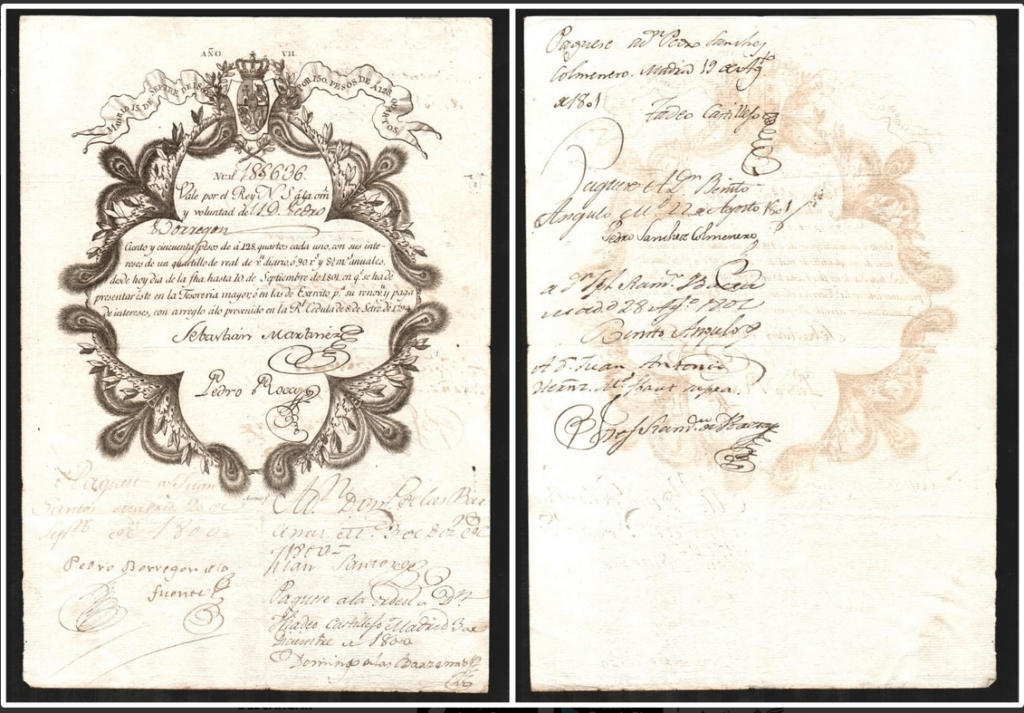 AÑO VII.
MADRID 15 DE SEPTRE DE 18
POR 150. PESOS DE A 128 QUARTOS.
Num.º 186696.
Vale por el Rey N. S. á la orn
y voluntad de D. Pedro
Borregon
Ciento y cincuenta pesos de á 128 quartos cada uno, con sus inte-
reses de un quartillo de real de v.n diario, ó 90 r.s y 8½ m.s anuales,
desde hoy dia de la fha. hasta 10 de Septiembre de 1801, en q.e se ha de
presentar éste en la Tesoreria mayor, ó en las de Exercito p.a su renov.n y paga
de intereses, con arreglo alo prevenido en la R.l Cedula de 8 de Setre. de 1794.
Sebastián Martinez
Pedro Rocas
Paguese a Juan
Santos Madrid 20 de
Sept.e de 1800
Pedro Borregon de la
fuente
A D.n Dom.o de las Bar
cenas M.d 3 de Diz.e de
1800
Juan Santos
Paguese a la orden de D.n
Tadeo Castillejo Madrid 3 de
Diciembre de 1800
Domingo de las Barzenas
Paguese a D.n Pedro Sanchez
Colmenero. Madrid 19 de Ag.to
de 1801
Tadeo Castillejo
Paguese a D.n Benito
Angulo M.d 22 de Agosto 1801
Pedro Sanchez Colmenero
a D.n Jph. Ram.n
Madrid 28 Ag.to 1801
Benito Angulo
A D.n Juan Antonio
M.d fhaut supra.
Josef Ram.n de